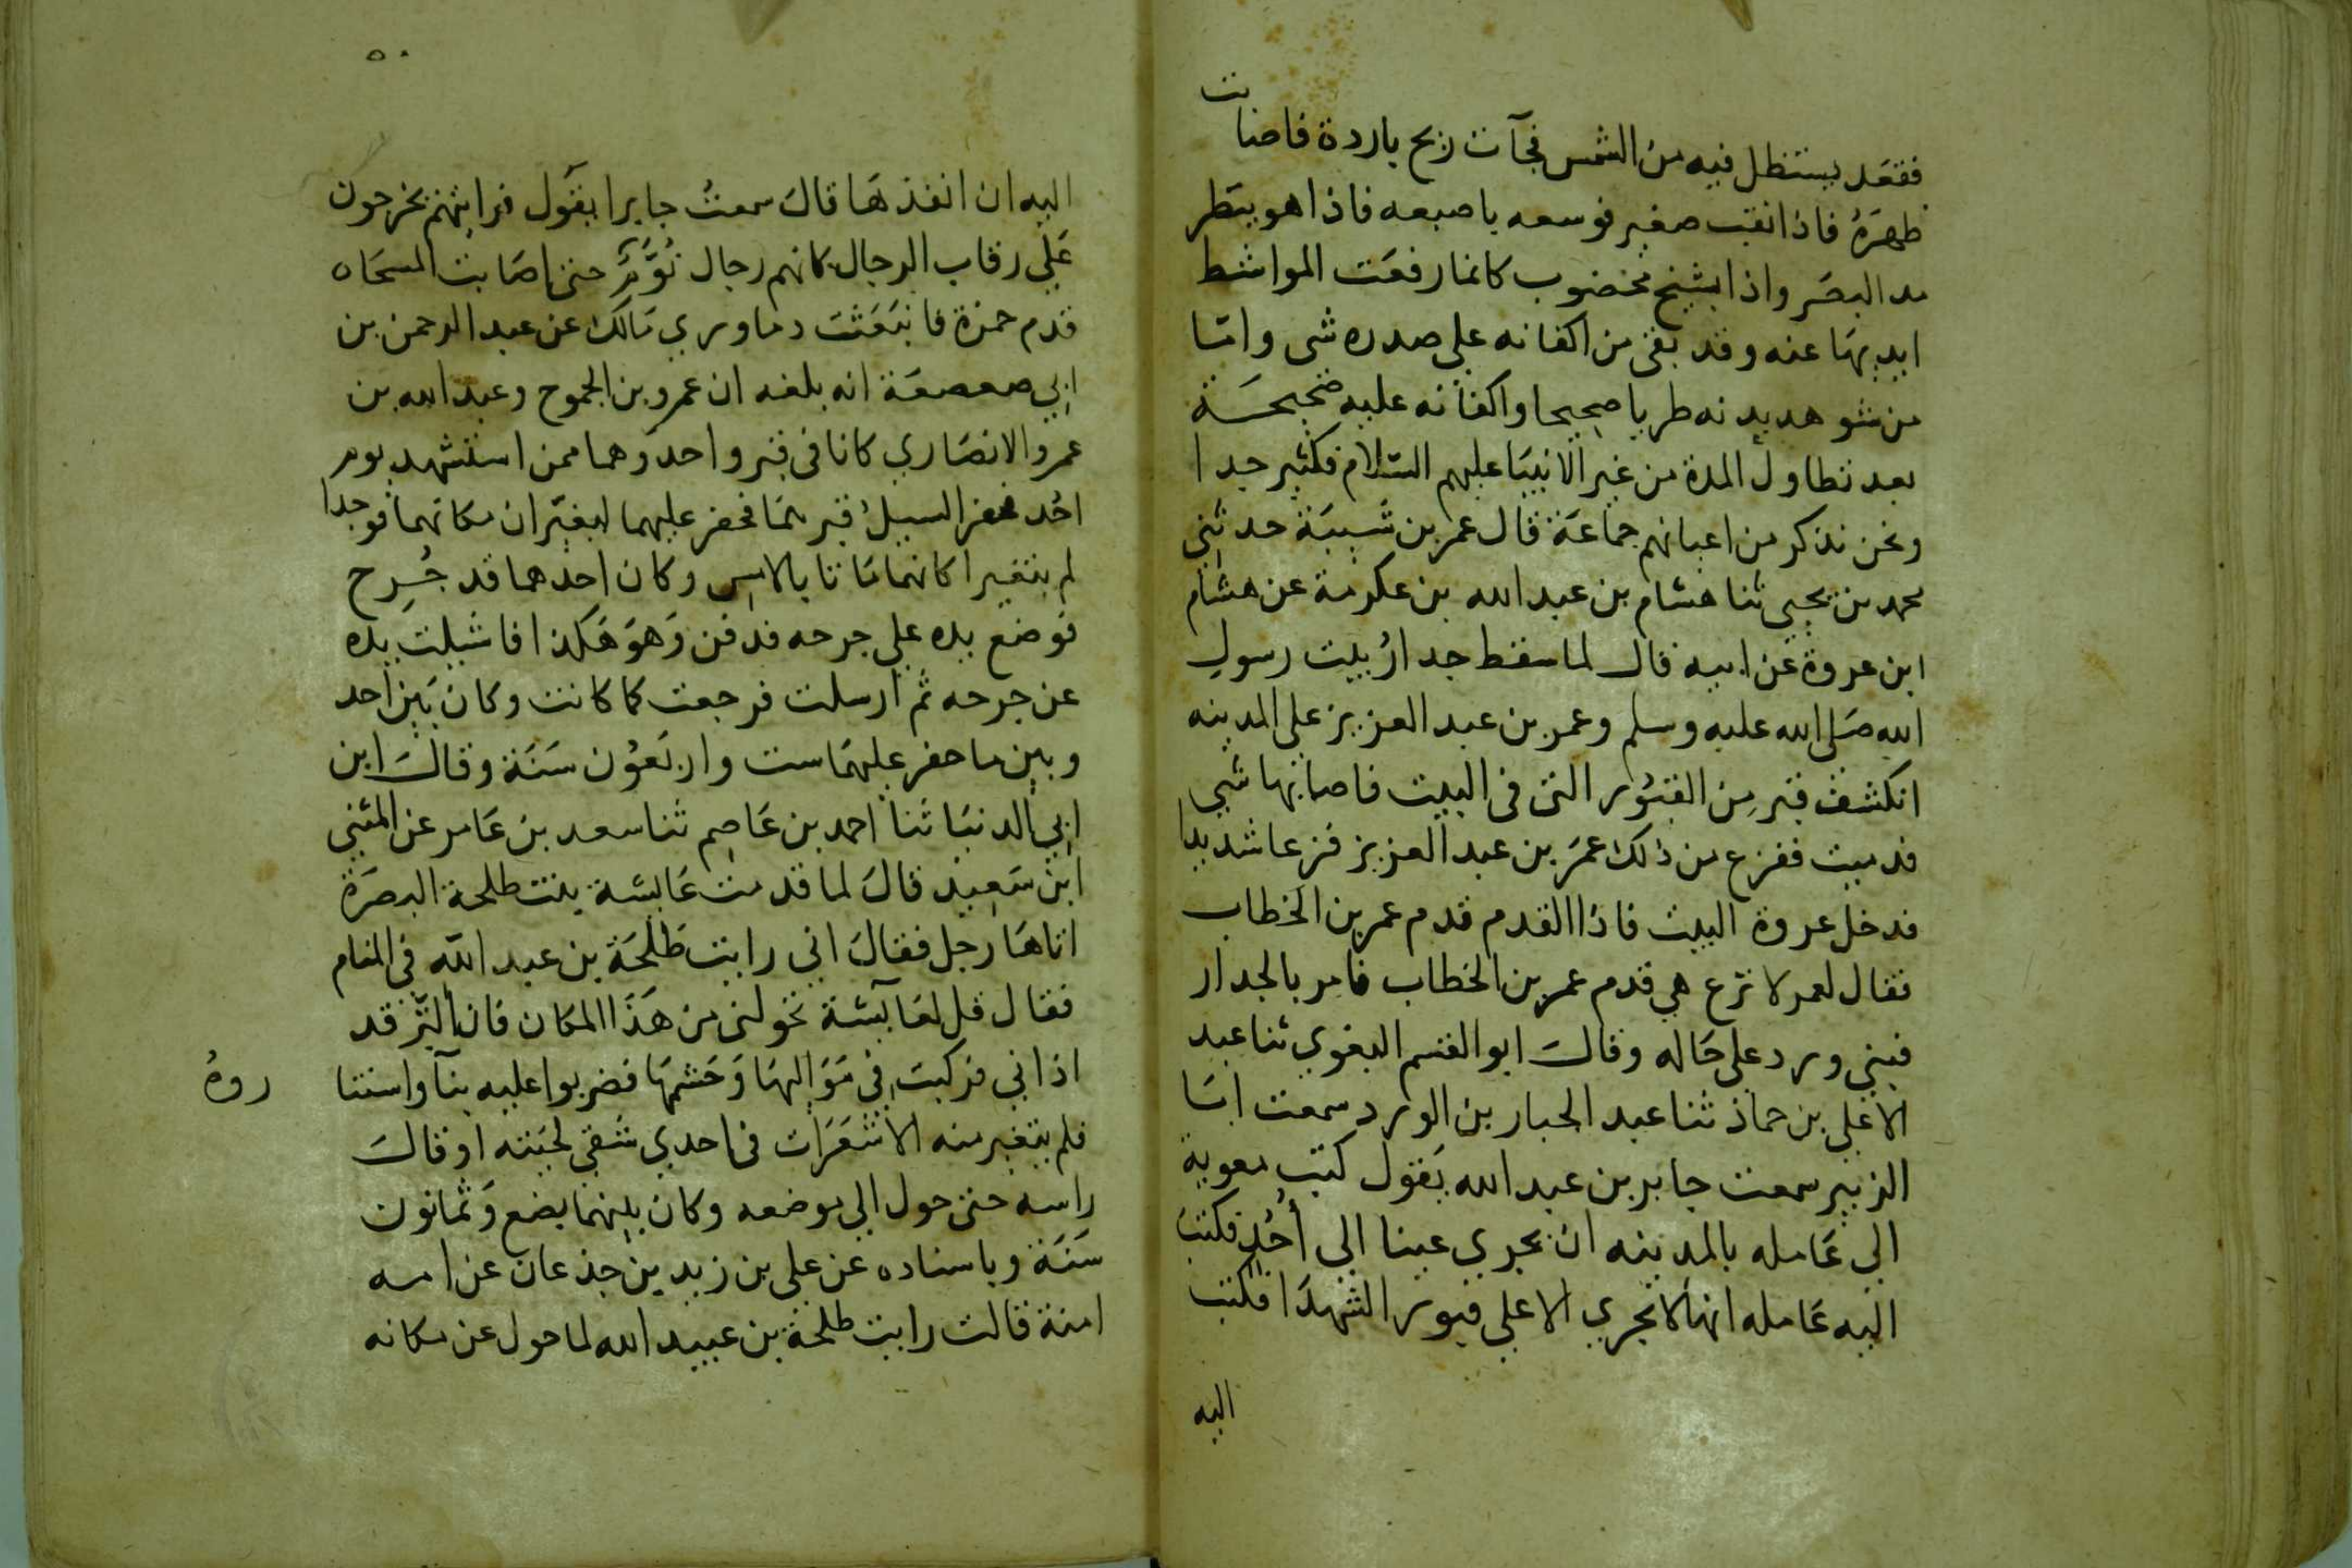 فقعد يستظل فيه من الشمس فجآت ريح باردة فاصابت
ظهره فاذا نقب صغير فوسعه باصبعه فاذا هو ينظر
مد البصر واذا بشيخ مخضوب كانما رفعت المواشط
ايديها عنه وقد بقى من اكفانه على صدره شى وامّا
من شوهد بدنه طريا صحيحا واكفانه عليه صحيحة
بعد تطاول المدة من غير الانبيا عليهم السّلام فكثير جدا
ونحن نذكر من اعيانهم جماعة قال عمر بن شبيبة حدثني
محمد بن يحيى ثنا هشام بن عبد الله بن عكرمة عن هشام
ابن عروة عن ابيه قال لما سقط جدارُ بيت رسول
الله صلى الله عليه وسلم وعمر بن عبد العزيز على المدينه
انكشف قبر من القبور التى فى البيت فاصابها شي
قد ميت ففزع من ذلك عمر بن عبد العزيز فزعا شديدا
فدخل عروة البيت فاذا القدم قدم عمر بن الخطاب
فقال لعمر لا ترع هي قدم عمر بن الخطاب فامر بالجدار
فبني ورد على حاله وقال ابو القسم البغوي ثنا عبد
الاعلى بن حماد ثنا عبد الجبار بن الورد سمعت ابا
الزبير سمعت جابر بن عبد الله يقول كتب معوية
الي عامله بالمدينه ان يجري عينا الي أُحُد فكتب
اليه عامله انها لا تجري الا على قبور الشهدا فكتب
اليه
٥٠
اليه ان انفذها قال سمعت جابرا يقول فرايتهم يخرجون
على رقاب الرجال كانهم رجال نُوَّم حتى اصابت المسحاه
قدم حمزة فانبعثت دما وروي مالك عن عبد الرحمن بن
ابي صعصعة انه بلغه ان عمرو بن الجموح وعبد الله بن
عمرو الانصاري كانا في قبر واحد وهما ممن استشهد يوم
احُد فحفر السيل قبرهما فحفر عليهما ليغيّران مكانهما فوجدا
لم يتغيرا كانهما ماتا بالامس وكان احدهما قد جُرِح
فوضع يده على جرحه فدفن وهو هكذا فاشيلت يده
عن جرحه ثم ارسلت فرجعت كما كانت وكان بين احد
وبين ما حفر عليهما ست واربعون سنة وقال ابن
ابي الدنيا ثنا احمد بن عاصم ثنا سعد بن عامر عن المثنى
ابن سعيد قال لما قدمت عايشة بنت طلحة البصرة
اتاها رجل فقال اني رايت طلحة بن عبد الله في المنام
فقال قل لعايشة تحولنى من هذا المكان فان النّز قد
اذاني فركبت في مواليها وحشمها فضربوا عليه بنآ واستتا
روهُ
فلم يتغير منه الا شعرات فى احدي شقي لحيته او قال
راسه حتى حول الي موضعه وكان بينهما بضع وثمانون
سنة وباسناده عن علي بن زيد بن جذعان عن امه
امنة قالت رايت طلحة بن عبيد الله لما حول عن مكانه